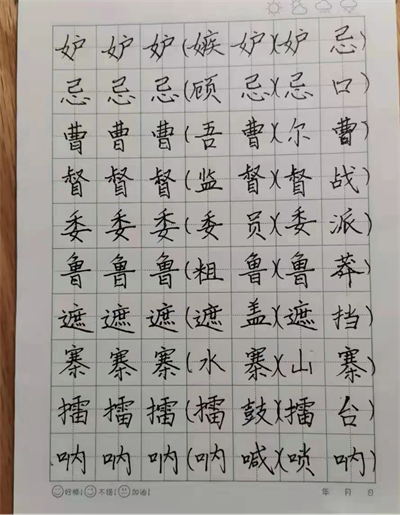 妒妒妒(嫉妒)(妒忌)
忌忌忌(顾忌)(忌口)
曹曹曹(吾曹)(尔曹)
督督督(监督)(督战)
委委委(委员)(委派)
鲁鲁鲁(粗鲁)(鲁莽)
遮遮遮(遮盖)(遮挡)
寨寨寨(水寨)(山寨)
擂擂擂(擂鼓)(擂台)
呐呐呐(呐喊)(唢呐)
好棒! 不错! 加油! 年 月 日